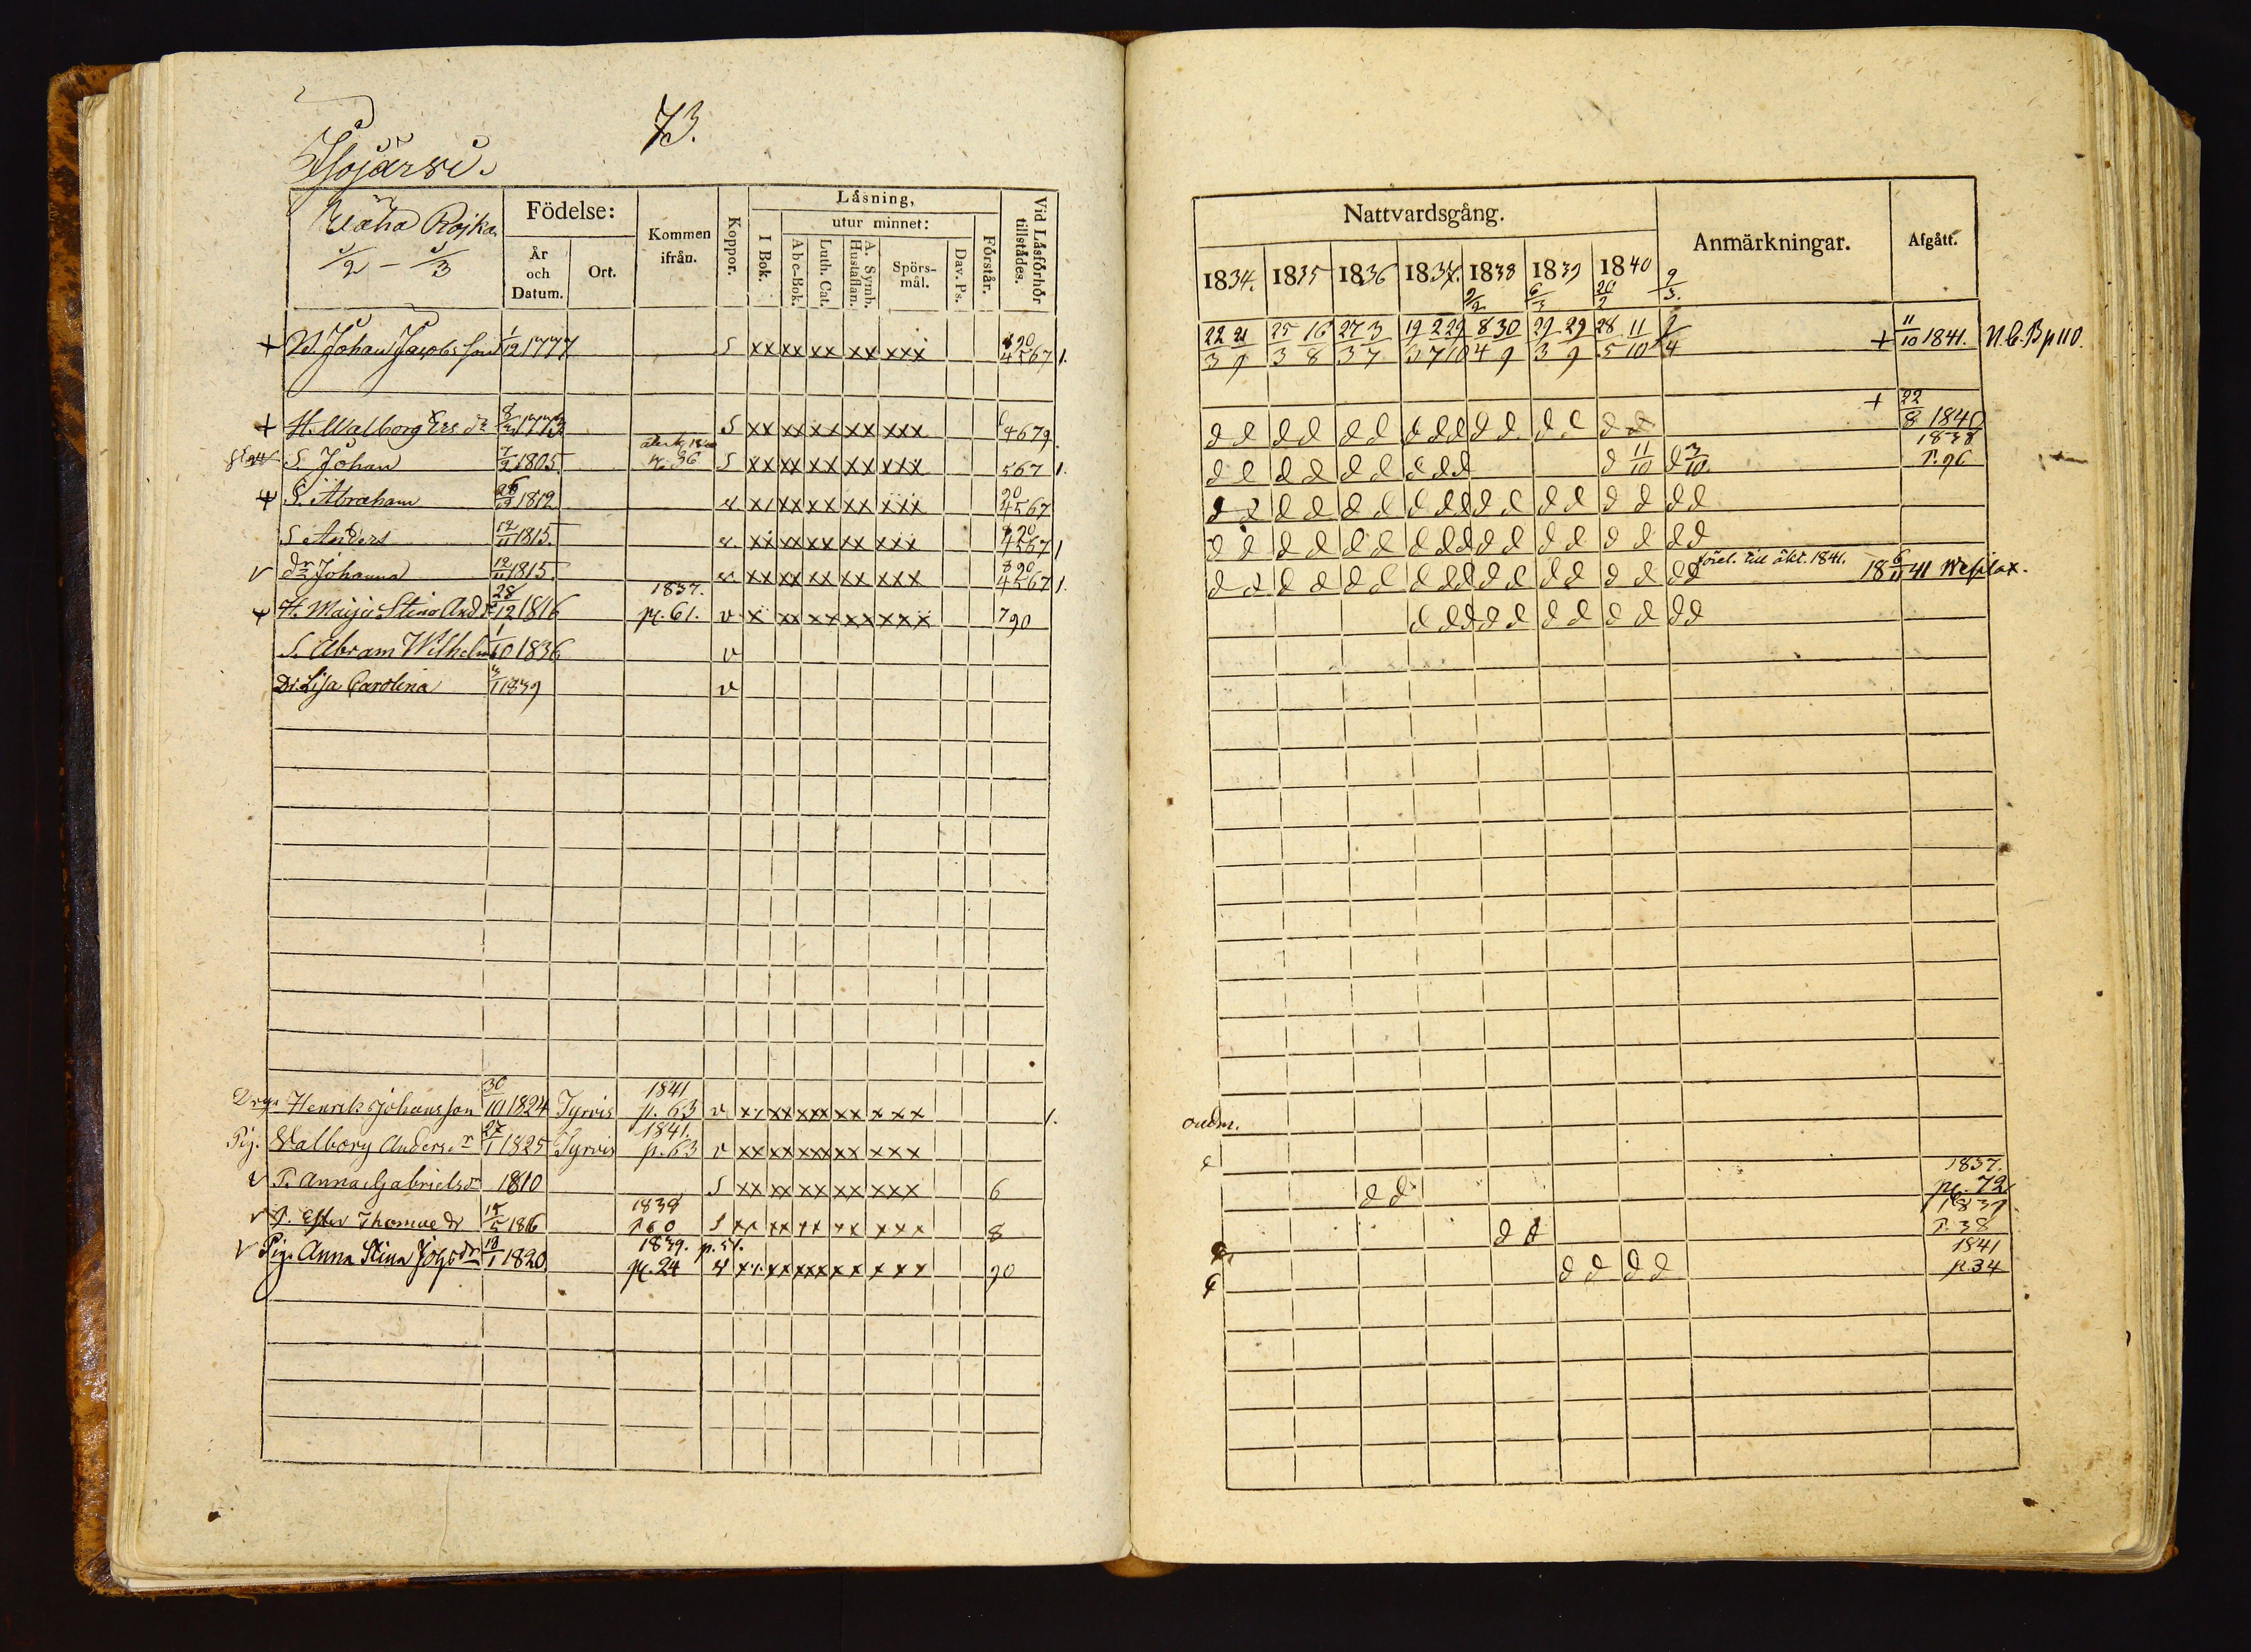 73.
Isojärvi.
Waha Rojka
1/2 - 1/3
Födelse:
År och Datum.
Ort.
Kommen ifrån.
Koppor.
Läsning,
I Bok.
utur minnet:
Abc-Bok.
Luth. Cat.
A. Symb. Hustaflan.
Spörsmål.
Dav. Ps.
Förstår.
Vid Läsförhör tillstädes.
+ Johan Jacobsson 1/12 1777 S xx xx xx xx xxx 890 4567 1.
+ H. Walborg Ers dr 1773 S xx xx xx xx xxx 4679
S. Johan 1805 p. 36 S xx xx xx xx xxx 567 1.
S. Abraham 1812 xx xx xx xxx 90 4567
S Anders 12/11 1815. v. xx xx xx xx xxx 890 4567 1
v dr Johanna 12/11 1815. v xx xx xx xx xxx 890 4567 1.
H. Maija Stina And dr 28/12 1816 1837. p. 61. v x xx xx xx xxx 790
S. Abram Wilhelm 1/10 1836 v
Dr Lisa Carolina 1839 v
Drg. Henrik Johansson 30/10 1824 Tyrvis 1841 p. 63 v xx xx xxx xx x xx 1.
Pig. Walborg Anders. dr 27/1 1825 Tyrvis 1841. p. 63 v xx xx xxx xx xxx
v P. Anna Gabrielsdr 1810 S xx xx xx xx xxx 6
v P. Ester Thomae dr 15/5 1816 1838 p 60 S xx xx xx xx xxx 8
v Pig. Anna Stina Joh. dr 13/1 1820 1839. p. 24 p. 51. xx xx xxx x xxx 90
Nattvardsgång.
Anmärkningar.
Afgått.
1834. 1835 1836 1837. 1838 1839 1840
9/2 6/3 20/2 9/3.
22 21 25 16 27 3 19 2 29 8 30 29 29 28 11 9
3 9 3 8 3 7 3 7 10 4 9 3 9 5 10 4
+ 11/10 1841. N. C. B p 110
d d d d d d d d d d d d d d d + 22/8 1840
d d d d d d d d d d 11/10 d 3/10 1838 P. 96
d d d d d d d d d d d d d d d d d
d d d d d d d d d d d d d d d d d
d d d d d d d d d d d d d d d d d förel. till äkt. 1841. 18 6/11 41 Wesilax.
d d d d d d d d d d d
oadm.
d d 1837. p. 72
d d 1839 P. 38
d d d d 1841 p. 34